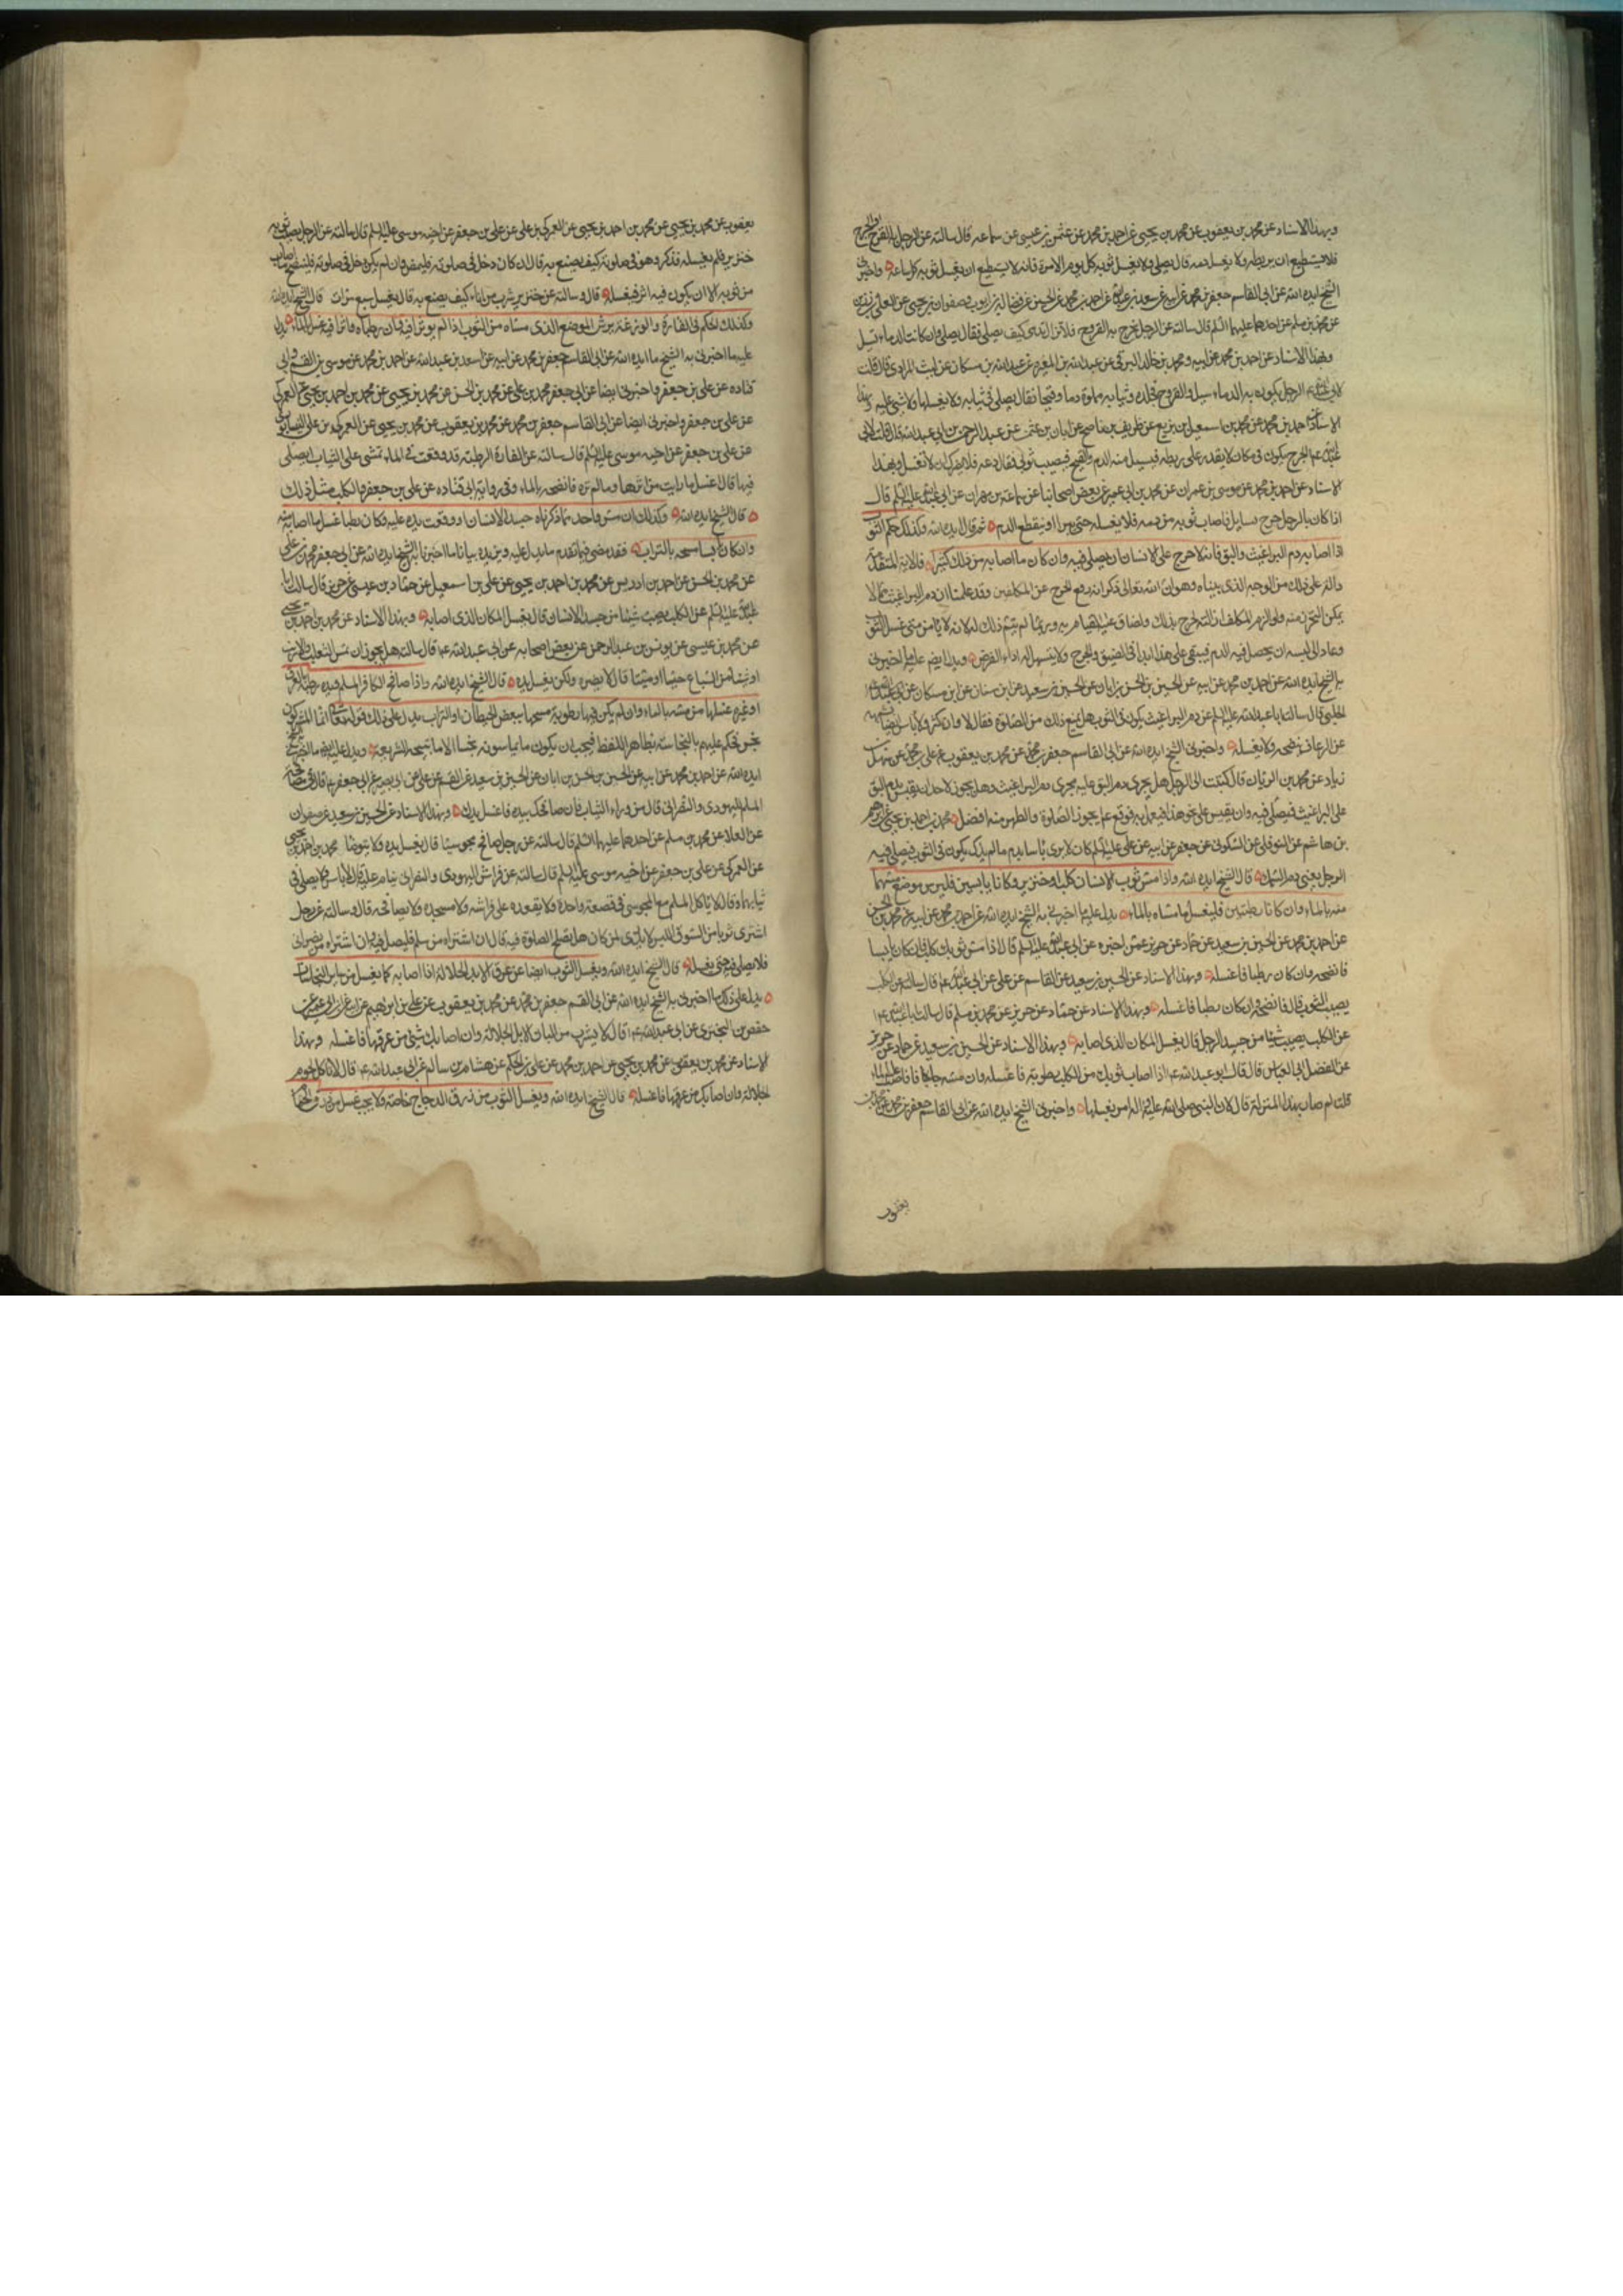 وبهذا الاسناد عن محمد بن يعقوب عن محمد بن يحيى عن احمد بن محمد عن عثمن بن عيسى عن سماعه قال سالته عن الرجل به القرح او الجرح
فلا يستطيع ان يربطه ولا يغسل دمه قال يصلى ولا يغسل ثوبه كل يوم الا مرة فانه لا يستطيع ان يغسل ثوبه كل ساعة واخبرنى
الشيخ ايده الله عن ابى القاسم جعفر بن محمد عن ابيه عن سعد بن عبدالله عن احمد بن محمد عن الحسين عن فضالة بن ايوب وصفوان بن يحيى عن العلا بن رزين
عن محمد بن مسلم عن احدهما عليهما السلم قال سالته عن الرجل يخرج به القروح فلا تزال تدمى كيف يصلى فقال يصلى وان كانت الدماء تسيل
وبهذا الاسناد عن احمد بن محمد عن ابيه ومحمد بن خالد البرقى عن عبدالله بن المغيرة عن عبدالله بن مسكان عن ليث المرادى قال قلت
لابى عبدالله الرجل يكون به الدماميل والقروح فجلده وثيابه مملوة دما وقيحا فقال يصلى فى ثيابه ولا يغسلها ولا شئ عليه وبهذا
الاسناد عن احمد بن محمد عن محمد بن اسمعيل بن بزيع عن ظريف بن ناصح عن ابان بن عثمن عن عبد الرحمن بن ابى عبدالله قال قلت لابى
عبدالله الجرح يكون فى مكان لا يقدر على ربطه فيسيل منه الدم والقيح فيصيب ثوبى فقال دعه فلا يضرك ان لا تغسله وبهذا
الاسناد عن احمد بن محمد عن موسى بن عمران عن محمد بن ابى عمير عن بعض اصحابنا عن سماعة بن مهران عن ابى عبدالله عليه السلم قال
اذا كان بالرجل جرح سايل فاصاب ثوبه من دمه فلا يغسله حتى يبرا او ينقطع الدم ثم قال ايده الله وكذلك حكم الثوب
اذا اصابه دم البراغيث والبق فانه لا حرج على الانسان ان يصلى فيه وان كان ما اصابه من ذلك كثيرا فالاية المتقدمة
دالة على ذلك من الوجه الذى بيناه وهو ان الله تعالى ذكر انه رفع الحرج عن المكلفين وقد علمنا ان دم البراغيث مما لا
يمكن التحرز منه ومتى الزم المكلف ازالته لحرج بذلك وضاق عليه القيام به وربما لم يتم ذلك له لانه لا يامن متى غسل الثوب
وعاد الى لبسه ان يحصل فيه الدم فيبقى على هذا ابدا فى الضيق والحرج ولا يتسهل له اداء الفرض ويدل ايضا عليه ما اخبرنى
به الشيخ ايده الله عن احمد بن محمد عن ابيه عن الحسين بن الحسن بن ابان عن الحسين بن سعيد عن ابن سنان عن ابن مسكان عن
الحلبى قال سالت ابا عبدالله عليه السلم عن دم البراغيث يكون فى الثوب هل يمنع ذلك من الصلوة فقال لا وان كثر ولا باس ايضا بشبهه
من الرعاف ينضحه ولا يغسله واخبرنى الشيخ ايده الله عن ابى القاسم جعفر بن محمد عن محمد بن يعقوب عن على بن محمد عن سهل بن
زياد عن محمد بن الريان قال كتبت الى الرجل هل يجرى دم البق عليه مجرى دم البراغيث وهل يجوز لاحد ان يقيس بدم البق
على البراغيث فيصلى فيه وان يقيس على نحو هذا فيعمل به فوقع يجوز الصلوة والطهر منه افضل محمد بن احمد بن يحيى عن ابرهيم
بن هاشم عن النوفلى عن السكونى عن جعفر عن ابيه عن على عليه السلم كان لا يرى باسا بدم ما لم يذك يكون فى الثوب فيصلى فيه
الرجل يعنى دم السمك قال الشيخ ايده الله واذا مس ثوب الانسان كلب او خنزير وكانا يابسين فليرش موضع مسهما
منه بالماء وان كانا رطبين فليغسل ما مساه بالماء يدل عليه ما اخبرنى به الشيخ ايده الله عن احمد بن محمد عن ابيه عن محمد بن الحسن
عن احمد بن محمد عن الحسين بن سعيد عن حماد عن حريز عمن اخبره عن ابى عبدالله عليه السلم قال اذا مس ثوبك كلب فان كان يابسا
فانضحه وان كان رطبا فاغسله وبهذا الاسناد عن الحسين بن سعيد عن القاسم عن على عن ابى عبدالله ع قال سالته عن الكلب
يصيب الثوب قال فانضحه وان كان رطبا فاغسله وبهذا الاسناد عن حماد عن حريز عن محمد بن مسلم قال سالت ابا عبدالله ع
عن الكلب يصيب شيئا من جسد الرجل قال يغسل المكان الذى اصابه وبهذا الاسناد عن الحسين بن سعيد عن حماد عن حريز
عن الفضل ابى العباس قال قال ابو عبدالله ع اذا اصاب ثوبك من الكلب رطوبة فاغسله وان مسه جافا فاصبب عليه الماء
قلت لم صار بهذا المنزلة قال لان النبى صلى الله عليه واله امر بغسلها واخبرنى الشيخ ايده الله عن ابى القاسم جعفر بن محمد عن محمد بن
يعقوب
يعقوب عن محمد بن يحيى عن محمد بن احمد بن يحيى عن العمركى بن على عن على بن جعفر عن اخيه موسى عليه السلم قال سالته عن الرجل يصيب ثوبه
خنزير فلم يغسله فذكر وهو فى صلوته كيف يصنع به قال ان كان دخل فى صلوته فليمض وان لم يكن دخل فى صلوته فلينضح ما اصاب
من ثوبه الا ان يكون فيه اثر فيغسله قال وسالته عن خنزير شرب من اناء كيف يصنع به قال يغسل سبع مرات قال الشيخ ايده الله
وكذلك الحكم فى الفارة والوزغة يرش الموضع الذى مساه من الثوب اذا لم يوثرا فيه فان رطباه واثرا فيه غسل بالماء يدل
عليه ما اخبرنى به الشيخ ايده الله عن ابى القاسم جعفر بن محمد عن ابيه عن سعد بن عبدالله عن احمد بن محمد عن موسى بن القسم وابى
قتاده عن على بن جعفر واخبرنى ايضا عن ابى جعفر محمد بن على عن محمد بن الحسن عن محمد بن يحيى عن محمد بن احمد بن يحيى عن العمركى
عن على بن جعفر واخبرنى ايضا عن ابى القاسم جعفر بن محمد عن محمد بن يعقوب عن محمد بن يحيى عن العمركى بن على النيسابورى
عن على بن جعفر عن اخيه موسى عليه السلم قال سالته عن الفارة الرطبة قد وقعت فى الماء تمشى على الثياب ايصلى
فيها قال اغسل ما رايت من اثرها وما لم تره فانضحه بالماء وفى رواية ابى قتاده عن على بن جعفر والكلب مثل ذلك
قال الشيخ ايده الله وكذلك ان مس واحد مما ذكرناه جسد الانسان او وقعت يده عليه وكان رطبا غسل ما اصابه منه
وان كان يابسا مسحه بالتراب فقد مضى فيما تقدم ما يدل عليه ويزيده بيانا ما اخبرنا به الشيخ ايده الله عن ابى جعفر محمد بن على
عن محمد بن الحسن عن احمد بن ادريس عن محمد بن احمد بن يحيى عن على بن اسمعيل عن حماد بن عيسى عن حريز قال سالت ابا
عبدالله عليه السلم عن الكلب يصيب شيئا من جسد الانسان قال يغسل المكان الذى اصابه وبهذا الاسناد عن محمد بن احمد بن يحيى
عن محمد بن عيسى عن يونس بن عبد الرحمن عن بعض اصحابه عن ابى عبدالله ع قال سالته هل يجوز ان يمس الثعلب والارنب
او شيئا من السباع حيا او ميتا قال لا يضره ولكن يغسل يده قال الشيخ ايده الله واذا صافح الكافر المسلم ويده رطبة بالعرق
او غيره غسلها من مسه بالماء وان لم يكن فيها رطوبة مسحها ببعض الحيطان او التراب يدل على ذلك قوله تعالى انما المشركون
نجس فحكم عليهم بالنجاسة بظاهر اللفظ فيجب ان يكون ما يماسونه نجسا الا ما تبيحه الشريعة ويدل عليه ما اخبرنى الشيخ
ايده الله عن احمد بن محمد عن ابيه عن الحسين بن الحسن بن ابان عن الحسين بن سعيد عن القسم عن على عن ابى بصير عن ابى جعفر ع قال فى مصافحة
المسلم اليهودى والنصرانى قال من وراء الثياب فان صافحك بيده فاغسل يدك وبهذا الاسناد عن الحسين بن سعيد عن صفوان
عن العلا عن محمد بن مسلم عن احدهما عليهما السلم قال سالته عن رجل صافح مجوسيا قال يغسل يده ولا يتوضا محمد بن احمد بن يحيى
عن العمركى عن على بن جعفر عن اخيه موسى عليه السلم قال سالته عن فراش اليهودى والنصرانى ينام عليه قال لا باس ولا يصلى فى
ثيابهما وقال لا ياكل المسلم مع المجوسى فى قصعة واحدة ولا يقعده على فراشه ولا مسجده ولا يصافحه قال وسالته عن رجل
اشترى ثوبا من السوق للبس لا يدرى لمن كان هل تصلح الصلوة فيه قال ان اشتراه من مسلم فليصل فيه وان اشتراه من نصرانى
فلا يصلى فيه حتى يغسله قال الشيخ ايده الله ويغسل الثوب ايضا من عرق الابل الجلالة اذا اصابه كما يغسل من ساير النجاسات
يدل على ذلك ما اخبرنى به الشيخ ايده الله عن ابى القسم جعفر بن محمد عن محمد بن يعقوب عن على بن ابرهيم عن ابيه عن ابن ابى عمير عن
حفص بن البخترى عن ابى عبدالله ع قال لا يشرب من البان الابل الجلالة وان اصابك شئ من عرقها فاغسله وبهذا
الاسناد عن محمد بن يعقوب عن محمد بن يحيى عن احمد بن محمد عن على بن الحكم عن هشام بن سالم عن ابى عبدالله ع قال لا تاكل لحوم
الجلالة وان اصابك من عرقها فاغسله قال الشيخ ايده الله ويغسل الثوب من ذرق الدجاج خاصة ولا يجب غسل من ذرق الحمام